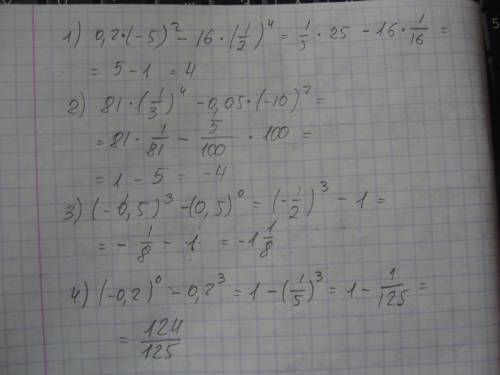 1) 0,2·(-5)² - 16·(1/2)⁴ = 1/5 · 25 - 16 · 1/16 =
= 5 - 1 = 4
2) 81·(1/3)⁴ - 0,05·(-10)² =
= 81 · 1/81 - 5/100 · 100 =
= 1 - 5 = -4
3) (-0,5)³ - (0,5)⁰ = (-1/2)³ - 1 =
= - 1/8 - 1 = -1 1/8
4) (-0,2)⁰ - 0,2³ = 1 - (1/5)³ = 1 - 1/125 =
= 124/125